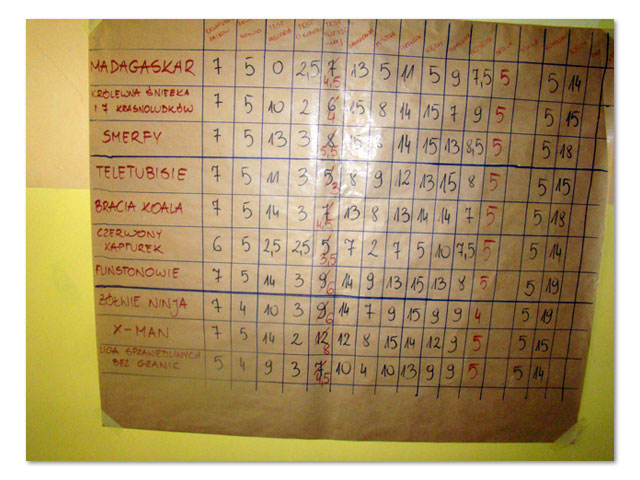 MADAGASKAR 7 5 0 2,5 7 13 5 11 5 9 7,5 5 5 14
4,5
KRÓLEWNA ŚNIEŻKA
I 7 KRASNOLUDKÓW 7 5 10 2 6 15 8 14 15 7 9 5 5 15
4
SMERFY 7 5 13 3 8 15 14 15 13 8,5 5 5 18
5,5
TELETUBISIE 7 5 11 3 5 8 9 12 13 15 8 5 5 15
BRACIA KOALA 7 5 14 3 7 13 8 13 14 14 7 5 5 18
4,5
CZERWONY
KAPTUREK 6 5 2,5 2,5 5 7 2 7 5 10 7,5 5 5 14
3,5
FLINSTONOWIE 7 5 14 3 9 14 9 13 15 13 8 5 5 19
6
ŻÓŁWIE NINJA 7 4 10 3 9 14 7 9 15 9 9 4 5 19
6
X-MAN 7 5 14 2 12 12 8 15 14 12 9 5 5 15
8
LIGA SPRAWIEDLIWYCH
BEZ GRANIC 5 4 9 3 7 10 4 10 13 9 9 5 5 14
4,5